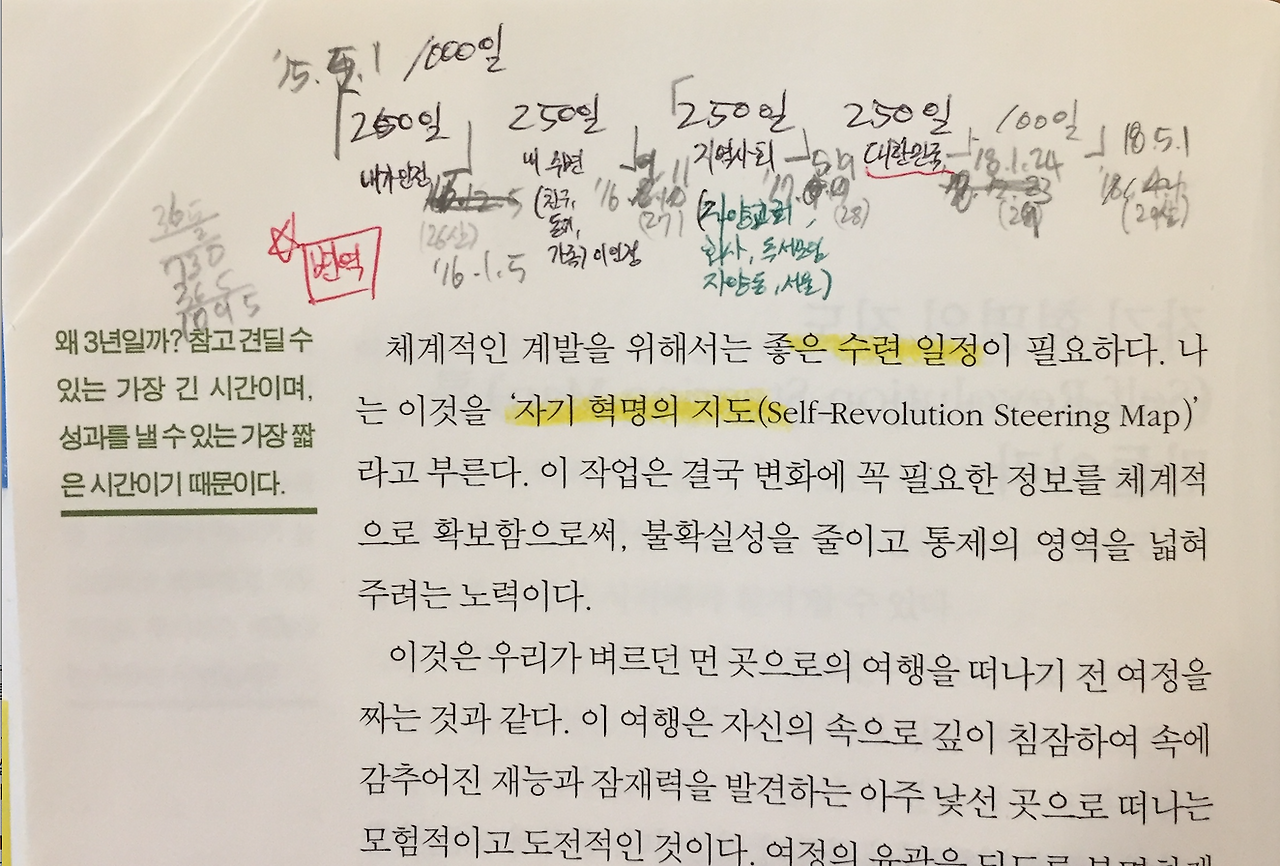 1000일
250일 250일 250일 100일 18.5.1
내가 인정 내 주변 지역사회 대한민국 '18.1.24
(친구,
(자양교회,
'16.1.5 가족) 이 인정 회사, 독서모임
번역 자양동, 서울)
왜 3년일까? 참고 견딜 수
있는 가장 긴 시간이며,
성과를 낼 수 있는 가장 짧
은 시간이기 때문이다.
체계적인 계발을 위해서는 좋은 수련 일정이 필요하다. 나
는 이것을 '자기 혁명의 지도(Self-Revolution Steering Map)'
라고 부른다. 이 작업은 결국 변화에 꼭 필요한 정보를 체계적
으로 확보함으로써, 불확실성을 줄이고 통제의 영역을 넓혀
주려는 노력이다.
이것은 우리가 벼르던 먼 곳으로의 여행을 떠나기 전 여정을
짜는 것과 같다. 이 여행은 자신의 속으로 깊이 침잠하여 속에
감추어진 재능과 잠재력을 발견하는 아주 낯선 곳으로 떠나는
모험적이고 도전적인 것이다. 여정의